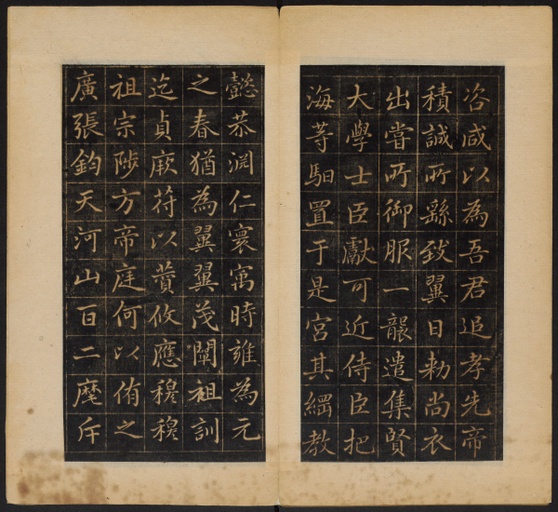 咨咸以為吾君追孝先帝
積誠所繇致翼日勑尚衣
出嘗所御服一襲遣集賢
大學士臣獻可近侍臣把
海等馹置于是宮其綱教
懿恭淵仁寰寓時雍為元
之春猶為翼翼茂闡祖訓
迄貞厥苻以蕡攸應穆穆
祖宗陟方帝庭何以侑之
廣張鈞天河山百二麾斥